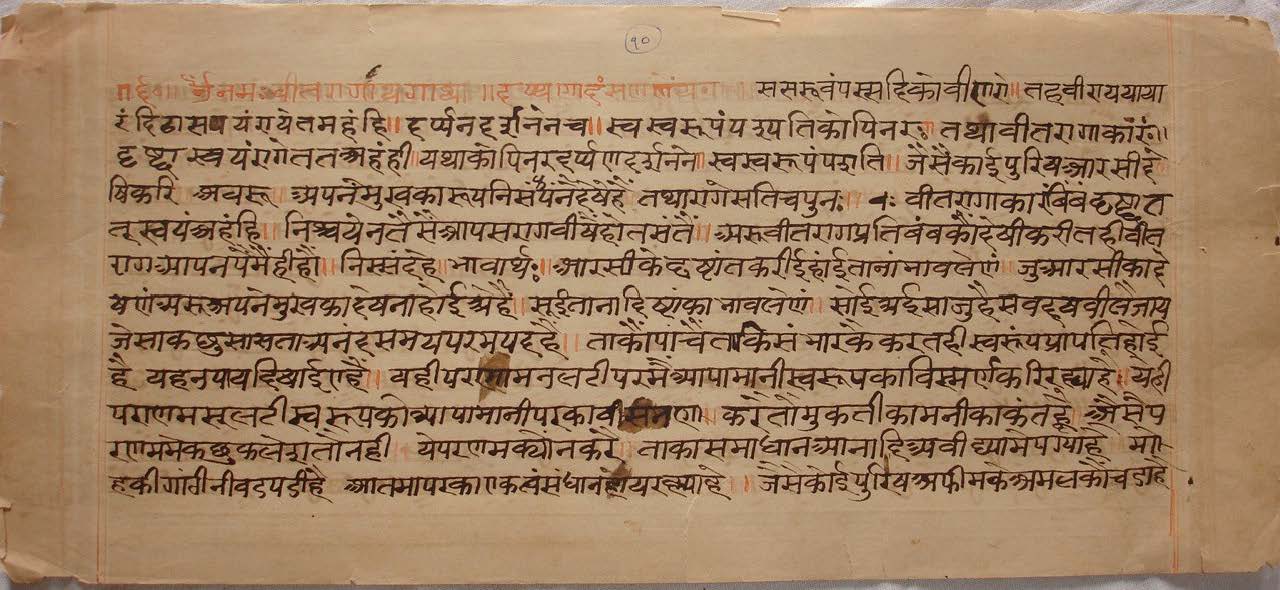 १०
ससरूवंपस्सदिकोवीणरो॥ तहवीराययाया
रंदिठासपयंरायेतमहंहि॥ दर्प्पनदर्शनेनच॥ स्वस्वरूपंपश्यतिकोपिनरः॥ तथावीतरागाकारं॥
दृष्ट्वास्वयंरागेततअहंही॥ यथाकोपिनरदर्प्पणदर्शनने॥ स्वस्वरूपंपशति॥ जैसैकोईपुरिषआरसीदे
षिकरि अवरू॥ अपनेमुखकारूपनिसंषयंनैदेषेहै तथारागेसतिचपुनः॥ १॰ वीतरागाकारंबिंबंदृष्ट्वात
तूस्वयंअहंहि॥ निश्चयेनतैसैआपसरागवीर्यहोतसंतै॥ अरूवीतरागप्रतिबंबकौदेषीकरीतहीवीत
रागआपनपैमैहीहौ॥ निस्संदेह॥ भावार्थः॥ आरसीकेदृष्टांतकरीईहांईतानांभावलेणं॥ जुआरसीकादे
षणंअरूअपनेमुखकादेषनाहोईअहै॥ सूईतानादिष्टांका भावलेणं॥ सोईअईसाजुहैसवदृव्यवीलैजाय
जेसाकछुसास्वताअनंदसमयपरमपदहै॥ ताकौपांचैताकिसंभारकेकरतहीस्वरूपप्रापतिहोई
है यहनपावहियाईणहै॥ वहीपरणामनुलटीपरमैआपामानीस्वरूपकाविस्मर्णकरिरह्याहै॥ यही
परणमसूलटीस्वरूपकोआपामानीपरकावीसमणा॥ करैतौमुकतीकामनीकाकंतहै॥ अैसेप
रणाममेकछुकलेशतोनही येपरणमक्योनकरे ताकासमाधानआनादिअवीद्यामेपग्याहै मो
हकीगांठीनीवडपडीहै आतमापरकाएकत्वंसंधानहोयरह्याहै॥ जैसैकोईपुरिषअफीमकेअमलकौचडाहै